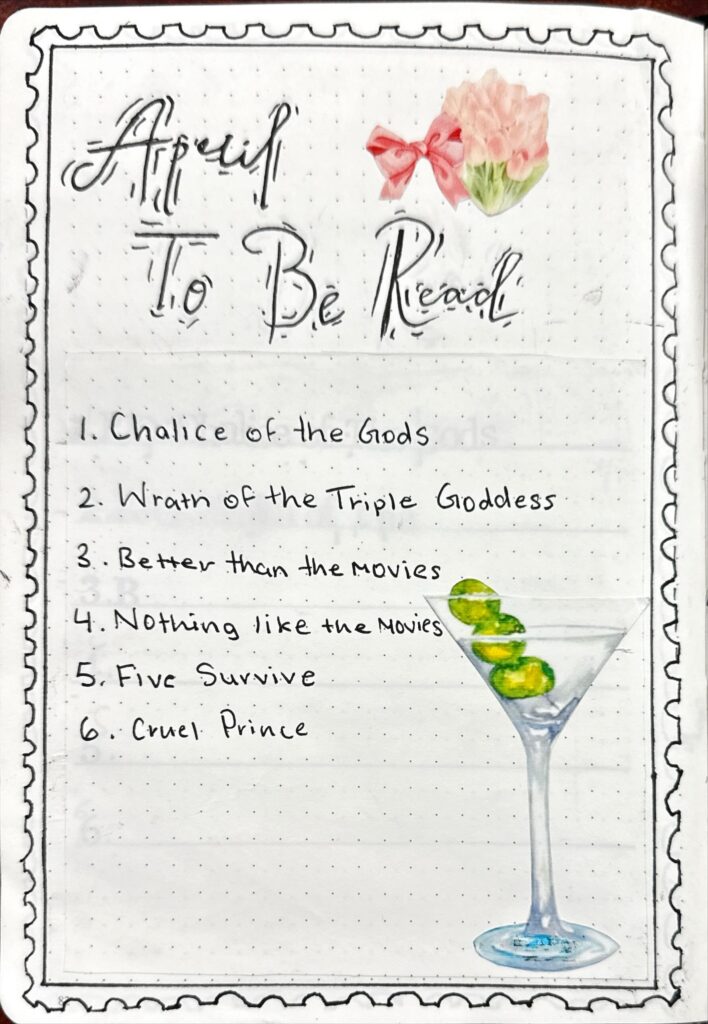 April
To Be Read
1. Chalice of the Gods
2. Wrath of the Triple Goddess
3. Better than the Movies
4. Nothing like the Movies
5. Five Survive
6. Cruel Prince